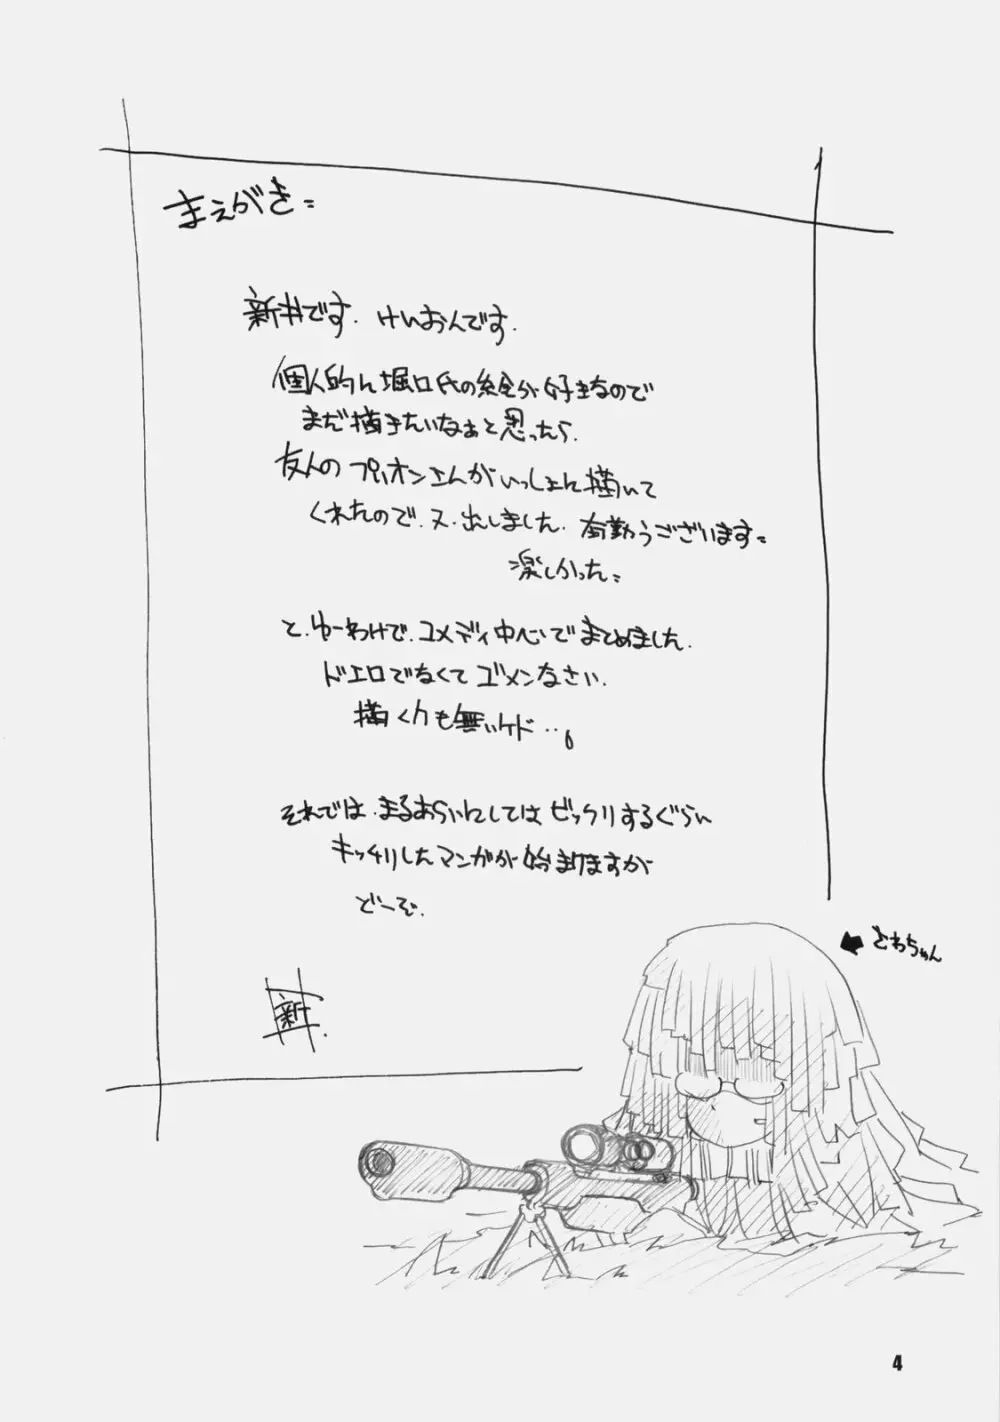 まえがき=
新井です. けいおんです.
個人的に堀口氏の絵が好きなので
まだ描きたいなぁと思ったら.
友人のプリオンさんがいっしょに描いて
くれたので.又.出しました. 有難うございます=
楽しかった=
と.ゆーわけで.コメディ中心でまとめました.
ドエロでなくてゴメンなさい.
描く力も無いケド・・。
それでは.まるあらいにしてはビックリするぐらい
キッチリしたマンガが始まりますが
どーぞ.
新.
さわちゃん
4